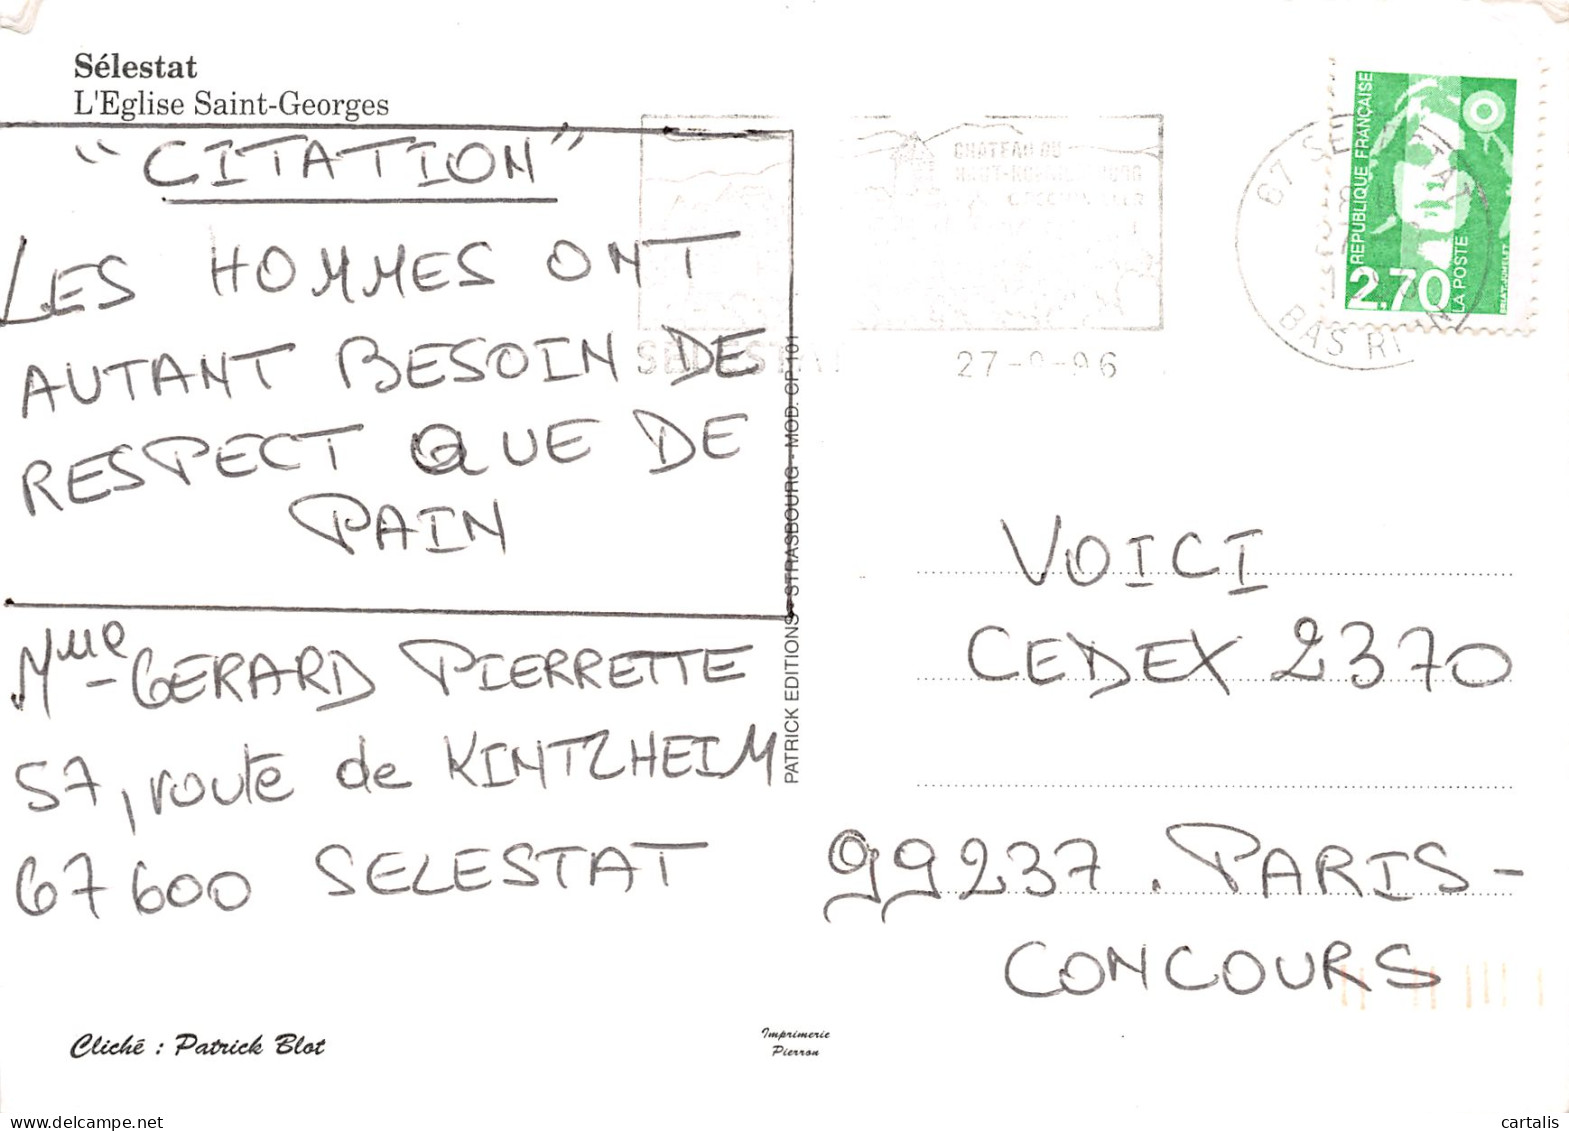 Sélestat
L'Eglise Saint-Georges
"CITATION"
LES HOMMES ONT
AUTANT BESOIN DE
RESPECT QUE DE
PAIN
Mme GERARD PIERRETTE
57, route de KINTZHEIM
67600 SELESTAT
Cliché : Patrick Blot
PATRICK EDITIONS - STRASBOURG - MOD. CP 101
Imprimerie
Pierron
CHATEAU DU
SELESTAT
27 - - 96
67 SELESTAT
BAS RHIN
REPUBLIQUE FRANÇAISE
2,70
LA POSTE
BRIAT-JUMELET
VOICI
CEDEX 2370
99237. PARIS-
CONCOURS
cartalis